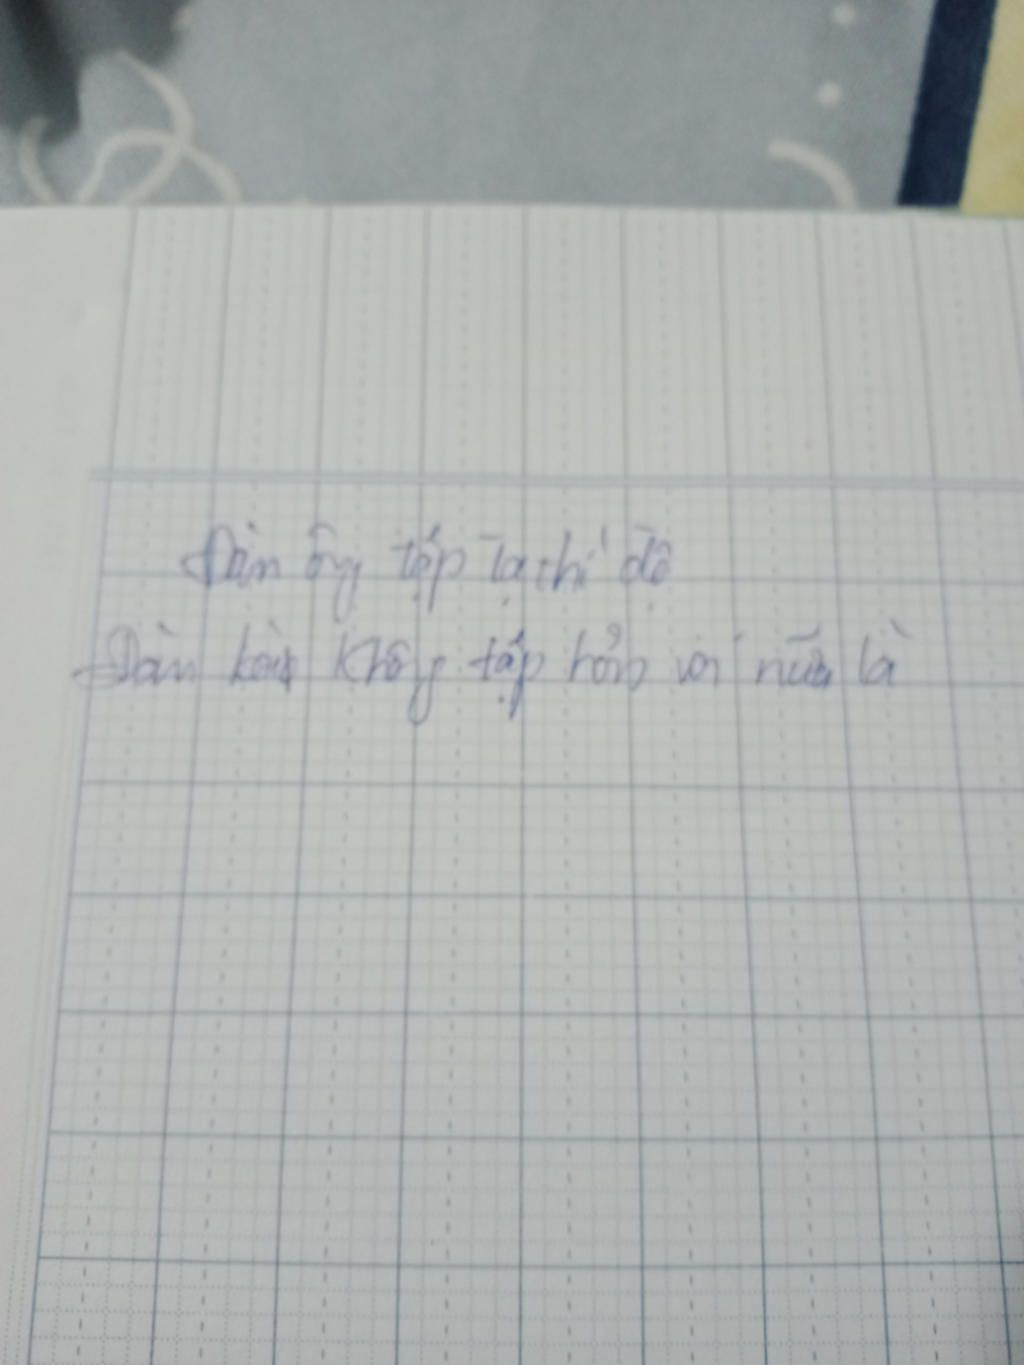 Đàn ông tập tạ chỉ độ
Đàn không tập hỏn với nữa là